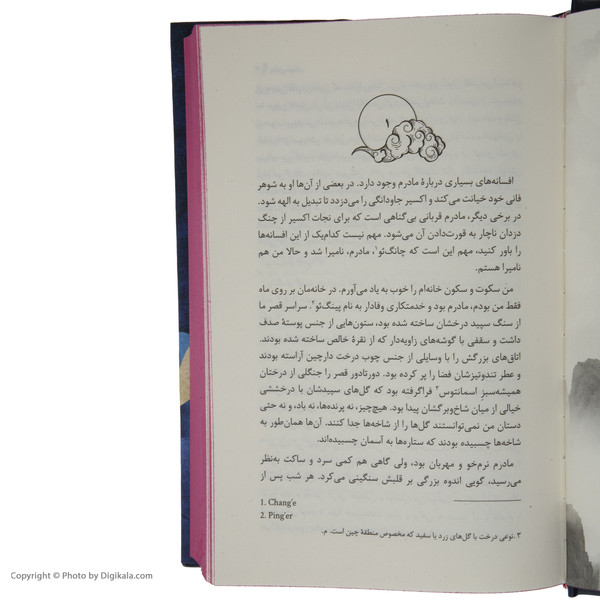 ۱
افسانه‌های بسیاری دربارهٔ مادرم وجود دارد. در بعضی از آن‌ها او به شوهر
فانی خود خیانت می‌کند و اکسیر جاودانگی را می‌دزدد تا تبدیل به الهه شود.
در برخی دیگر، مادرم قربانی بی‌گناهی است که برای نجات اکسیر از چنگ
دزدان ناچار به قورت‌دادن آن می‌شود. مهم نیست کدام‌یک از این افسانه‌ها
را باور کنید، مهم این است که چانگ‌ئو۱، مادرم، نامیرا شد و حالا من هم
نامیرا هستم.
من سکوت و سکون خانه‌ام را خوب به یاد می‌آورم. در خانه‌مان بر روی ماه
فقط من بودم، مادرم بود و خدمتکاری وفادار به نام پینگ‌ئو۲. سراسر قصر ما
از سنگ سپید درخشان ساخته شده بود، ستون‌هایی از جنس پوستهٔ صدف
داشت و سقفی با گوشه‌های زاویه‌دار که از نقرهٔ خالص ساخته شده بودند.
اتاق‌های بزرگش را با وسایلی از جنس چوب درخت دارچین آراسته بودند
و عطر تندوتیزشان فضا را پر کرده بود. دورتادور قصر را جنگلی از درختان
همیشه‌سبز اسمانتوس۳ فراگرفته بود که گل‌های سپیدشان با درخششی
خیالی از میان شاخ‌وبرگشان پیدا بود. هیچ‌چیز، نه پرنده‌ها، نه باد، و نه حتی
دستان من نمی‌توانستند گل‌ها را از شاخه‌ها جدا کنند. آن‌ها همان‌طور به
شاخه‌ها چسبیده بودند که ستاره‌ها به آسمان چسبیده‌اند.
مادرم نرم‌خو و مهربان بود، ولی گاهی هم کمی سرد و ساکت به‌نظر
می‌رسید، گویی اندوه بزرگی بر قلبش سنگینی می‌کرد. هر شب پس از
1. Chang'e
2. Ping'er
۳. نوعی درخت با گل‌های زرد یا سفید که مخصوص منطقهٔ چین است. م.
Copyright © Photo by Digikala.com